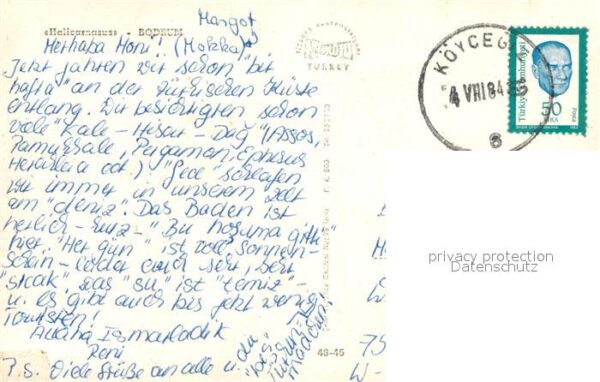 «Halicarnasus» - BODRUM
Margot
Merhaba Honi! (Mokka)
Jetzt fahren wir schon "bir
hafta" an der türkischen Küste
entlang. Wir besichtigten schon
viele "Kale - Hisar - Dağ" (Assos,
Pamukkale, Pergamon, Ephesus
Herakleia etc.) "Gece" schlafen
wir immer in unserem Zelt
am "deniz". Das Baden ist
herrlich - kurz - "Bu hoşuma gitti"
hier. "Her gün" ist voll Sonnen-
schein - leider auch sehr, sehr
"sıcak", das "su" ist "temiz" -
u. es gibt auch bis jetzt wenig
Touristen!
Allaha Ismarladık
Reni
P.S. Viele Grüße an alle u. die
TURKEY
KÖYCEĞ
4 VIII 84
Türkiye Cumhuriyeti
50
LİRA
privacy protection
Datenschutz
48-45
75
W-